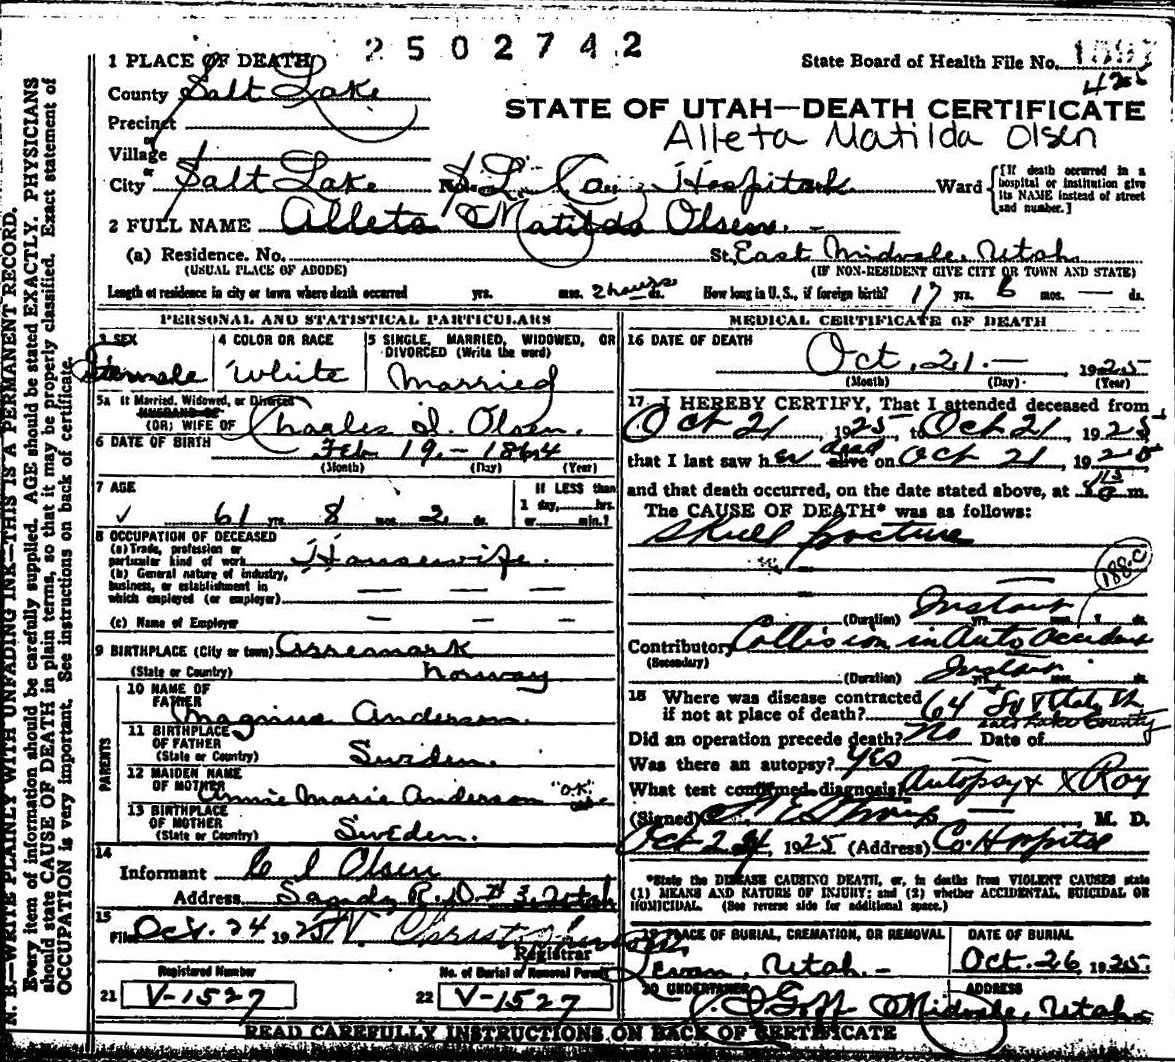 2502742
1 PLACE OF DEATH
State Board of Health File No.
County Salt Lake
STATE OF UTAH—DEATH CERTIFICATE
Precinct
Alleta Matilda Olsen
or
Village
or
City Salt Lake No. S. L. Co. Hospital Ward
[If death occurred in a hospital or institution give its NAME instead of street and number.]
2 FULL NAME Alleta Matilda Olsen.
(a) Residence. No. St. East Midvale, Utah
(USUAL PLACE OF ABODE) (IF NON-RESIDENT GIVE CITY OR TOWN AND STATE)
Length of residence in city or town where death occurred yrs. mos. 2 hours ds. How long in U. S., if foreign birth? 17 yrs. 6 mos. — ds.
PERSONAL AND STATISTICAL PARTICULARS
3 SEX
Female
4 COLOR OR RACE
White
5 SINGLE, MARRIED, WIDOWED, OR DIVORCED (Write the word)
Married
5a If Married, Widowed, or Divorced
HUSBAND OF
(OR) WIFE OF Charles I. Olsen.
6 DATE OF BIRTH Feb 19.- 1864
(Month) (Day) (Year)
7 AGE
61 yrs. 8 mos. 2 ds.
If LESS than
1 day, hrs.
or min.?
8 OCCUPATION OF DECEASED
(a) Trade, profession or
particular kind of work Housewife.
(b) General nature of industry,
business, or establishment in
which employed (or employer) — — —
(c) Name of Employer — — —
9 BIRTHPLACE (City or town)
(State or Country) Norway
PARENTS
10 NAME OF
FATHER Magnus Anderson.
11 BIRTHPLACE
OF FATHER
(State or Country) Sweden.
12 MAIDEN NAME
OF MOTHER Annie Marie Anderson "O.K."
13 BIRTHPLACE
OF MOTHER
(State or Country) Sweden.
14
Informant C I Olsen
Address Sandy R.D. # 3, Utah
15
Filed Oct. 24 1925
Registrar
Registered Number No. of Burial or Removal Permit
21 V-1527 22 V-1527
MEDICAL CERTIFICATE OF DEATH
16 DATE OF DEATH
Oct. 21. — 1925
(Month) (Day) (Year)
17 I HEREBY CERTIFY, That I attended deceased from
Oct 21 1925 to Oct 21 1925
that I last saw her dead alive on Oct 21 1925
and that death occurred, on the date stated above, at m.
The CAUSE OF DEATH* was as follows:
Skull fracture
188-C
(Duration) Instant yrs. mos. ds.
Contributory Collision in Auto Accident
(Secondary)
(Duration) Instant yrs. mos. ds.
18 Where was disease contracted
if not at place of death? 64 So
Salt Lake County
Did an operation precede death? No Date of
Was there an autopsy? Yes
What test confirmed diagnosis? Autopsy & X Ray
(Signed) M. D.
Oct 24, 1925 (Address) Co. Hospital
*State the DISEASE CAUSING DEATH, or, in deaths from VIOLENT CAUSES state
(1) MEANS AND NATURE OF INJURY; and (2) whether ACCIDENTAL, SUICIDAL OR
HOMICIDAL. (See reverse side for additional space.)
19 PLACE OF BURIAL, CREMATION, OR REMOVAL
Levan, Utah.-
DATE OF BURIAL
Oct. 26, 1925.
20 UNDERTAKER ADDRESS
Goff Midvale, Utah.
READ CAREFULLY INSTRUCTIONS ON BACK OF CERTIFICATE
N. B.—WRITE PLAINLY WITH UNFADING INK—THIS IS A PERMANENT RECORD.
Every item of information should be carefully supplied. AGE should be stated EXACTLY. PHYSICIANS
should state CAUSE OF DEATH in plain terms, so that it may be properly classified. Exact statement of
OCCUPATION is very important. See instructions on back of certificate.